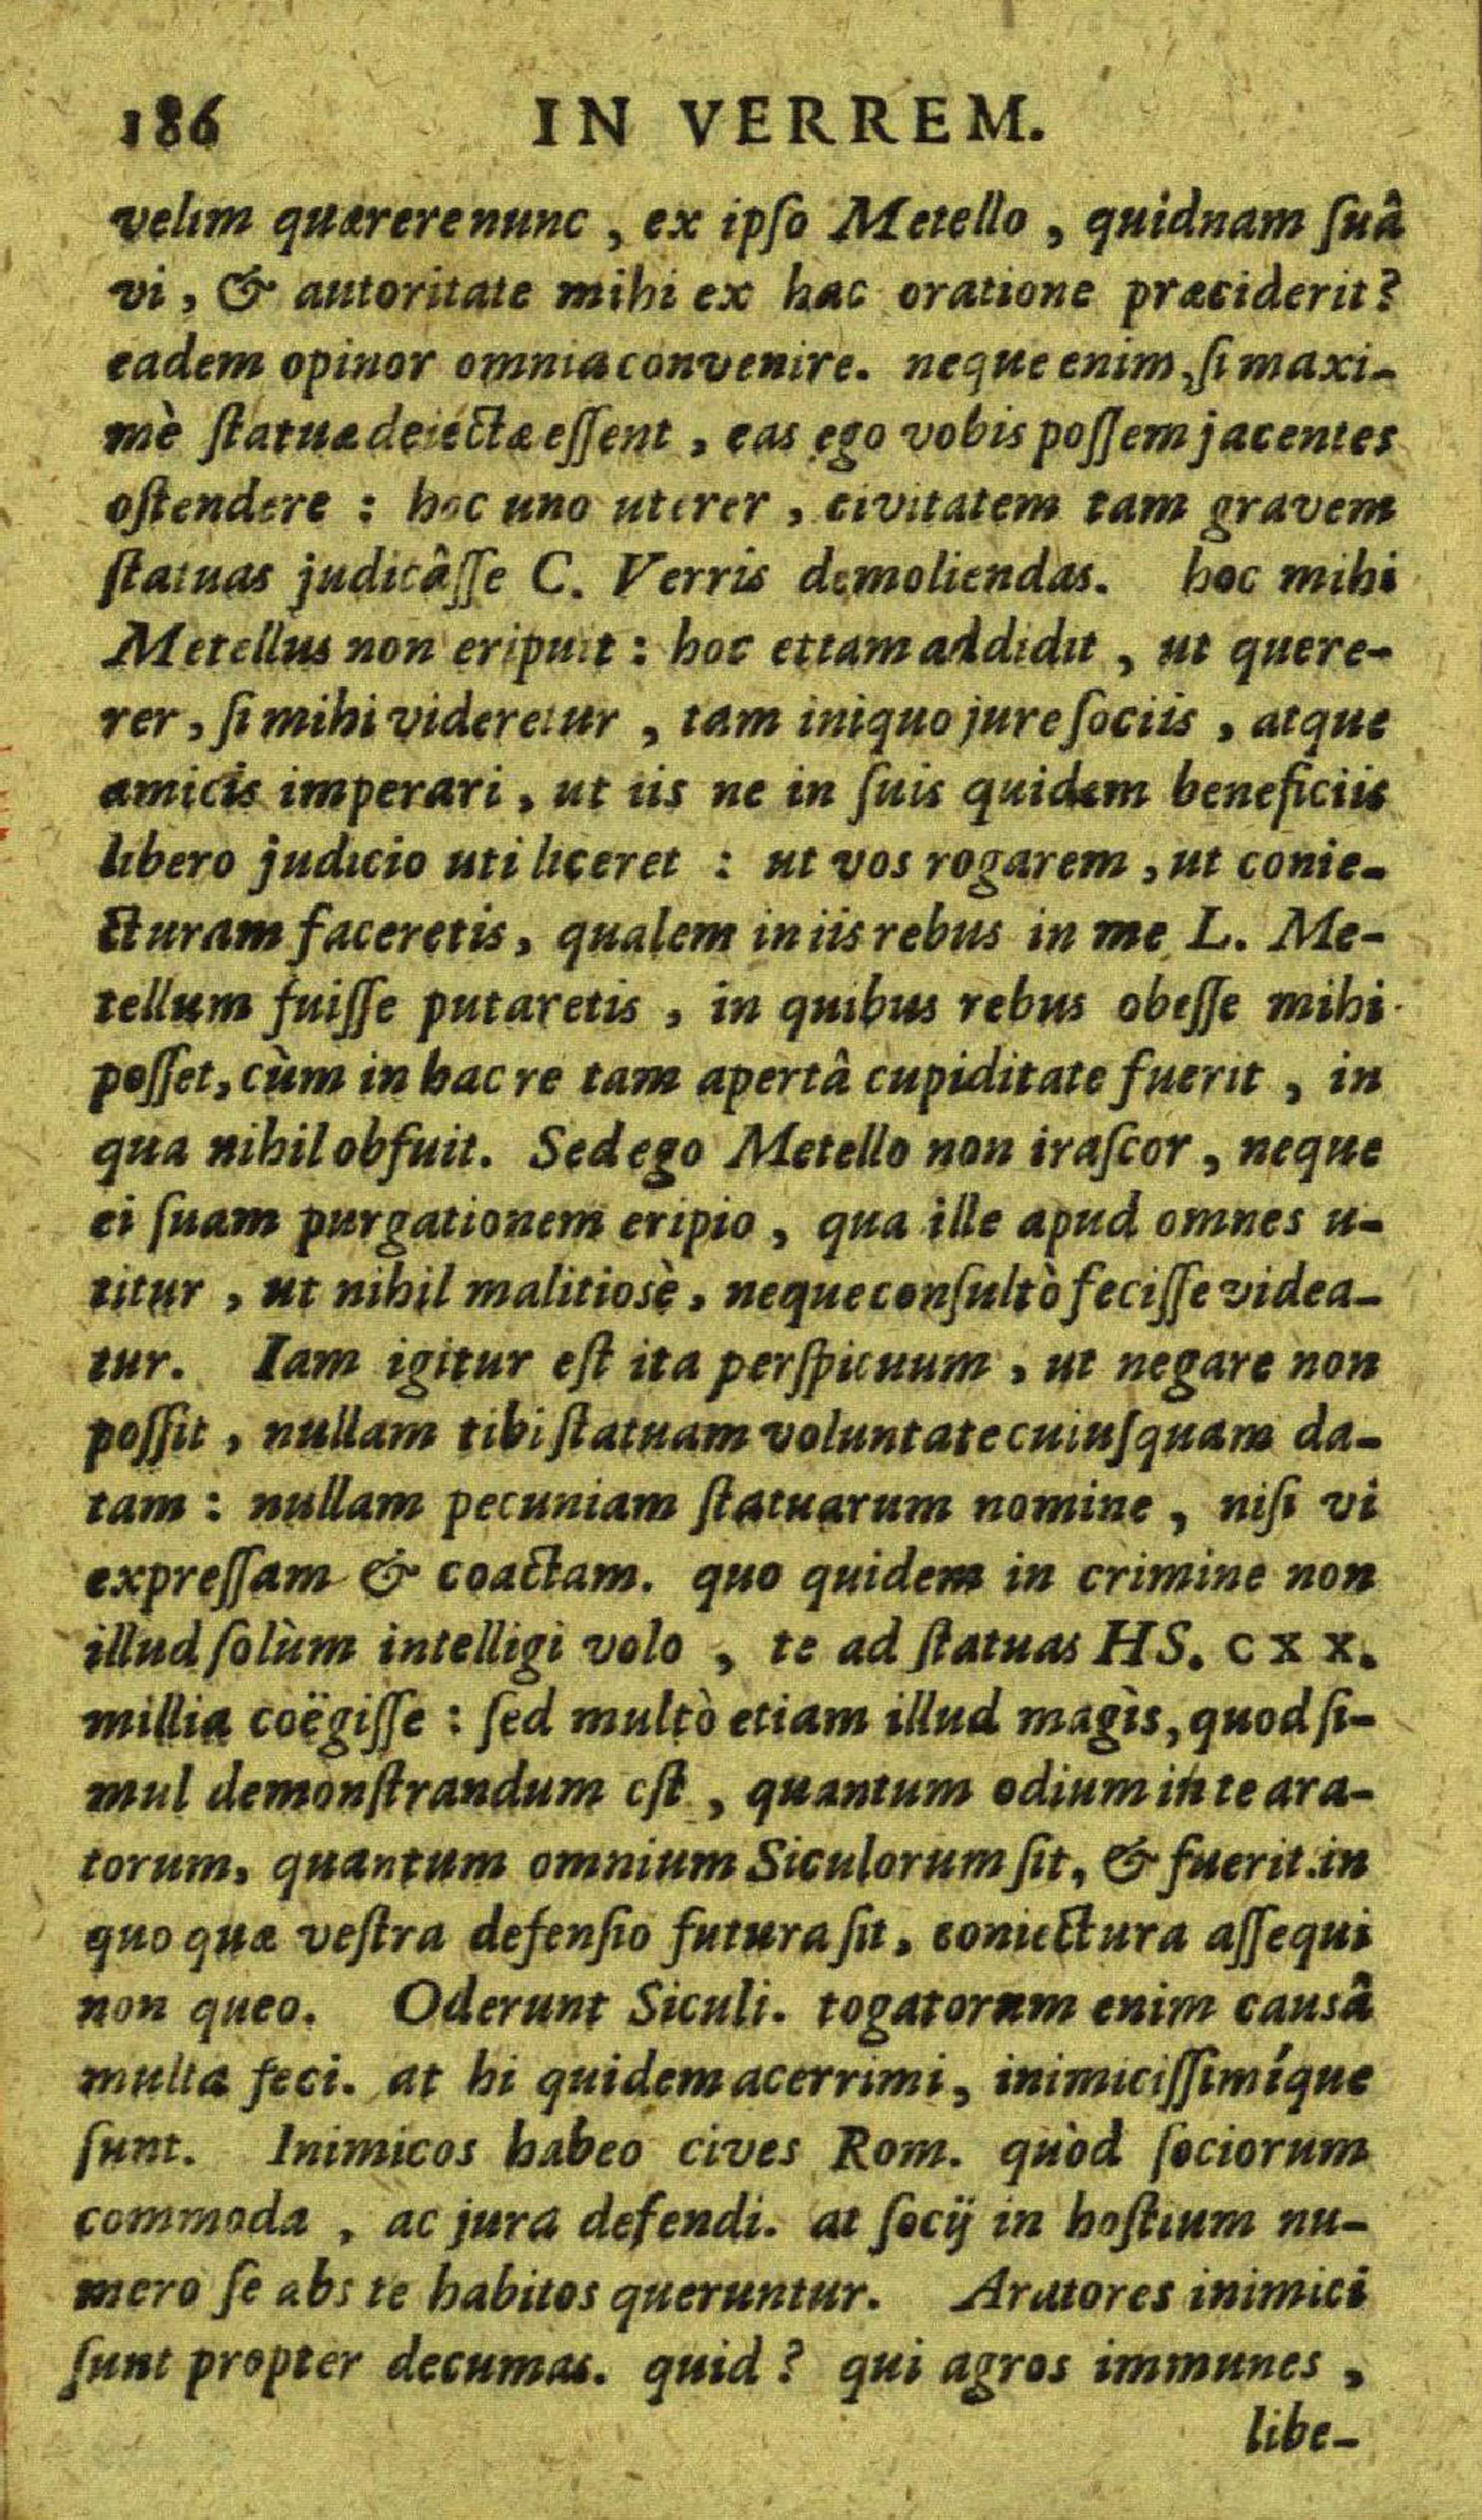 186 IN VERREM.
velim quærere nunc, ex ipſo Metello, quidnam ſuâ
vi, & autoritate mihi ex hac oratione præciderit?
eadem opinor omnia convenire. neque enim, ſi maxi-
mè ſtatuæ deiectæ eſſent, eas ego vobis poſſem jacentes
oſtendere: hoc uno uterer, civitatem tam gravem
ſtatuas judicâſſe C. Verris demoliendas. hoc mihi
Metellus non eripuit: hoc ettam addidit, ut quere-
rer, ſi mihi videretur, tam iniquo jure ſociis, atque
amicis imperari, ut iis ne in ſuis quidem beneficiis
libero judicio uti liceret: ut vos rogarem, ut conie-
cturam faceretis, qualem in iis rebus in me L. Me-
tellum fuiſſe putaretis, in quibus rebus obeſſe mihi
poſſet, cùm in hac re tam apertâ cupiditate fuerit, in
qua nihil obfuit. Sed ego Metello non iraſcor, neque
ei ſuam purgationem eripio, qua ille apud omnes u-
titur, ut nihil malitiosè, neque conſultò feciſſe videa-
tur. Iam igitur eſt ita perſpicuum, ut negare non
poſſit, nullam tibi ſtatuam voluntate cuiuſquam da-
tam: nullam pecuniam ſtatuarum nomine, niſi vi
expreſſam & coactam. quo quidem in crimine non
illud ſolùm intelligi volo, te ad ſtatuas HS. CXX.
millia coëgiſſe: ſed multò etiam illud magìs, quod ſi-
mul demonſtrandum eſt, quantum odium in te ara-
torum, quantum omnium Siculorum ſit, & fuerit. in
quo quæ veſtra defenſio futura ſit, coniectura aſſequi
non queo. Oderunt Siculi. togatorum enim causâ
multa feci. at hi quidem acerrimi, inimiciſſimíque
ſunt. Inimicos habeo cives Rom. quòd ſociorum
commoda, ac jura defendi. at ſocij in hoſtium nu-
mero ſe abs te habitos queruntur. Aratores inimici
ſunt propter decumas. quid? qui agros immunes,
libe-